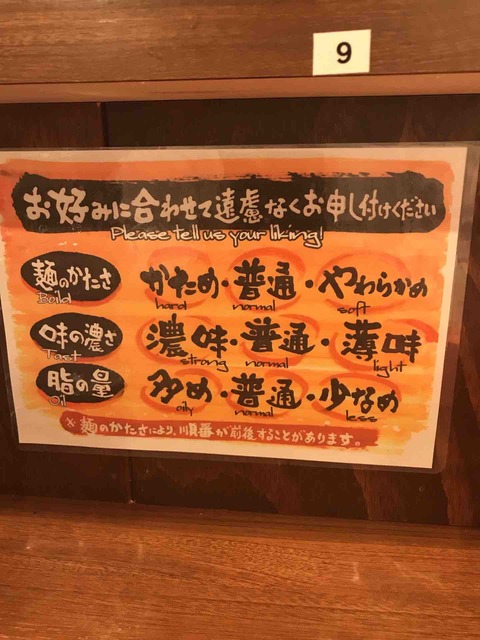 9
お好みに合わせて遠慮なくお申し付けください
Please tell us your liking!
麺のかたさ かため・普通・やわらかめ
Boild hard normal soft
味の濃さ 濃味・普通・薄味
Tast strong normal light
脂の量 多め・普通・少なめ
Oil oily normal less
※麺のかたさにより、順番が前後することがあります。